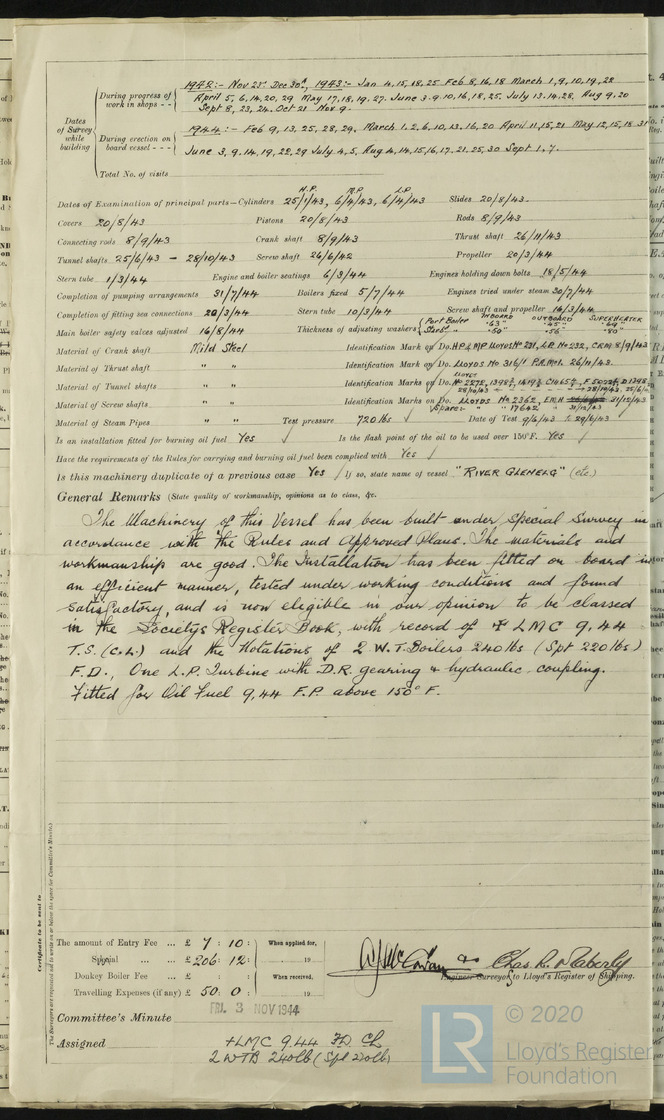 1942:- Nov 25 Dec 30th, 1943:- Jan 4, 15, 18, 25 Feb 8, 16, 18 March 1, 9, 10, 19, 28
During progress of work in shops - - April 5, 6, 14, 20, 29 May 17, 18, 19, 27. June 3. 9. 10, 16, 18, 25. July 13. 14. 28, Aug 9. 20
Sept 8, 23, 24. Oct 21 Nov 9.
Dates of Survey while building
1944:- Feb 9, 13, 25, 28, 29. March 1. 2, 6, 10, 13, 16, 20 April 11, 15, 21 May 12, 15, 18 31
During erection on board vessel - - - June 3, 9. 14, 19, 22, 29 July 4, 5, Aug 4, 14, 15, 16, 17. 21, 25, 30 Sept 1, 7.
Total No. of visits
H.P. M.P. L.P.
Dates of Examination of principal parts—Cylinders 25/1/43, 6/4/43, 6/4/43 Slides 20/8/43.
Covers 20/8/43 Pistons 20/8/43 Rods 8/9/43
Connecting rods 8/9/43 Crank shaft 8/9/43 Thrust shaft 26/11/43
Tunnel shafts 25/6/43 – 28/10/43 Screw shaft 26/6/42 Propeller 20/3/44
Stern tube 1/3/44 Engine and boiler seatings 6/3/44 Engines holding down bolts 18/5/44
Completion of pumping arrangements 31/7/44 Boilers fixed 5/7/44 Engines tried under steam 30/7/44
Completion of fitting sea connections 20/3/44 Stern tube 10/3/44 Screw shaft and propeller 16/3/44
INBOARD OUTBOARD SUPERHEATER
Main boiler safety valves adjusted 16/8/44 Thickness of adjusting washers Port Boiler .63" .45" .64"
Starb. " .50" .56" .80"
Material of Crank shaft Mild Steel Identification Mark on Do. H.P. & M.P LLOYDS No 231, L.P. No 232, C.R.M. 8/9/43
Material of Thrust shaft " " Identification Mark on Do. LLOYDS No 316/1 26/11/43.
Material of Tunnel shafts " " Identification Marks on Do. LLOYDS
Material of Screw shafts " " Identification Marks on Do. LLOYDS No 2362, 31/12/43
Spare:- " " 17642 31/12/43
Material of Steam Pipes " " Test pressure 720 lbs Date of Test 9/6/43 & 29/6/43
Is an installation fitted for burning oil fuel Yes Is the flash point of the oil to be used over 150°F. Yes
Have the requirements of the Rules for carrying and burning oil fuel been complied with Yes
Is this machinery duplicate of a previous case Yes If so, state name of vessel "RIVER GLENELG" (etc.)
General Remarks (State quality of workmanship, opinions as to class, &c.
The Machinery of this Vessel has been built under Special Survey in
accordance with the Rules and Approved Plans. The materials and
workmanship are good. The Installation has been fitted on board in
an efficient manner, tested under working conditions and found
satisfactory, and is now eligible in our opinion to be classed
in the Societys Register Book, with record of ✠ LMC 9,44
T.S. (C.L.) and the Notations of 2 W.T. Boilers 240 lbs (Spt 220 lbs)
F.D., One L.P. Turbine with D.R. gearing & hydraulic coupling.
Fitted for Oil Fuel 9,44 F.P. above 150° F.
Certificate to be sent to
The Surveyors are requested not to write on or below the space for Committee's Minute.
The amount of Entry Fee ... £ 7 : 10 : When applied for,
Special ... ... £ 206 : 12 : 19
Donkey Boiler Fee ... £ : : When received,
Travelling Expenses (if any) £ 50 : 0 : 19
Engineer Surveyors to Lloyd's Register of Shipping.
FRI. 3 NOV 1944
Committee's Minute
Assigned +LMC 9.44 FD CL
2 WTB 240lb (Spt 220lb)
LR
© 2020
Lloyd's Register
Foundation